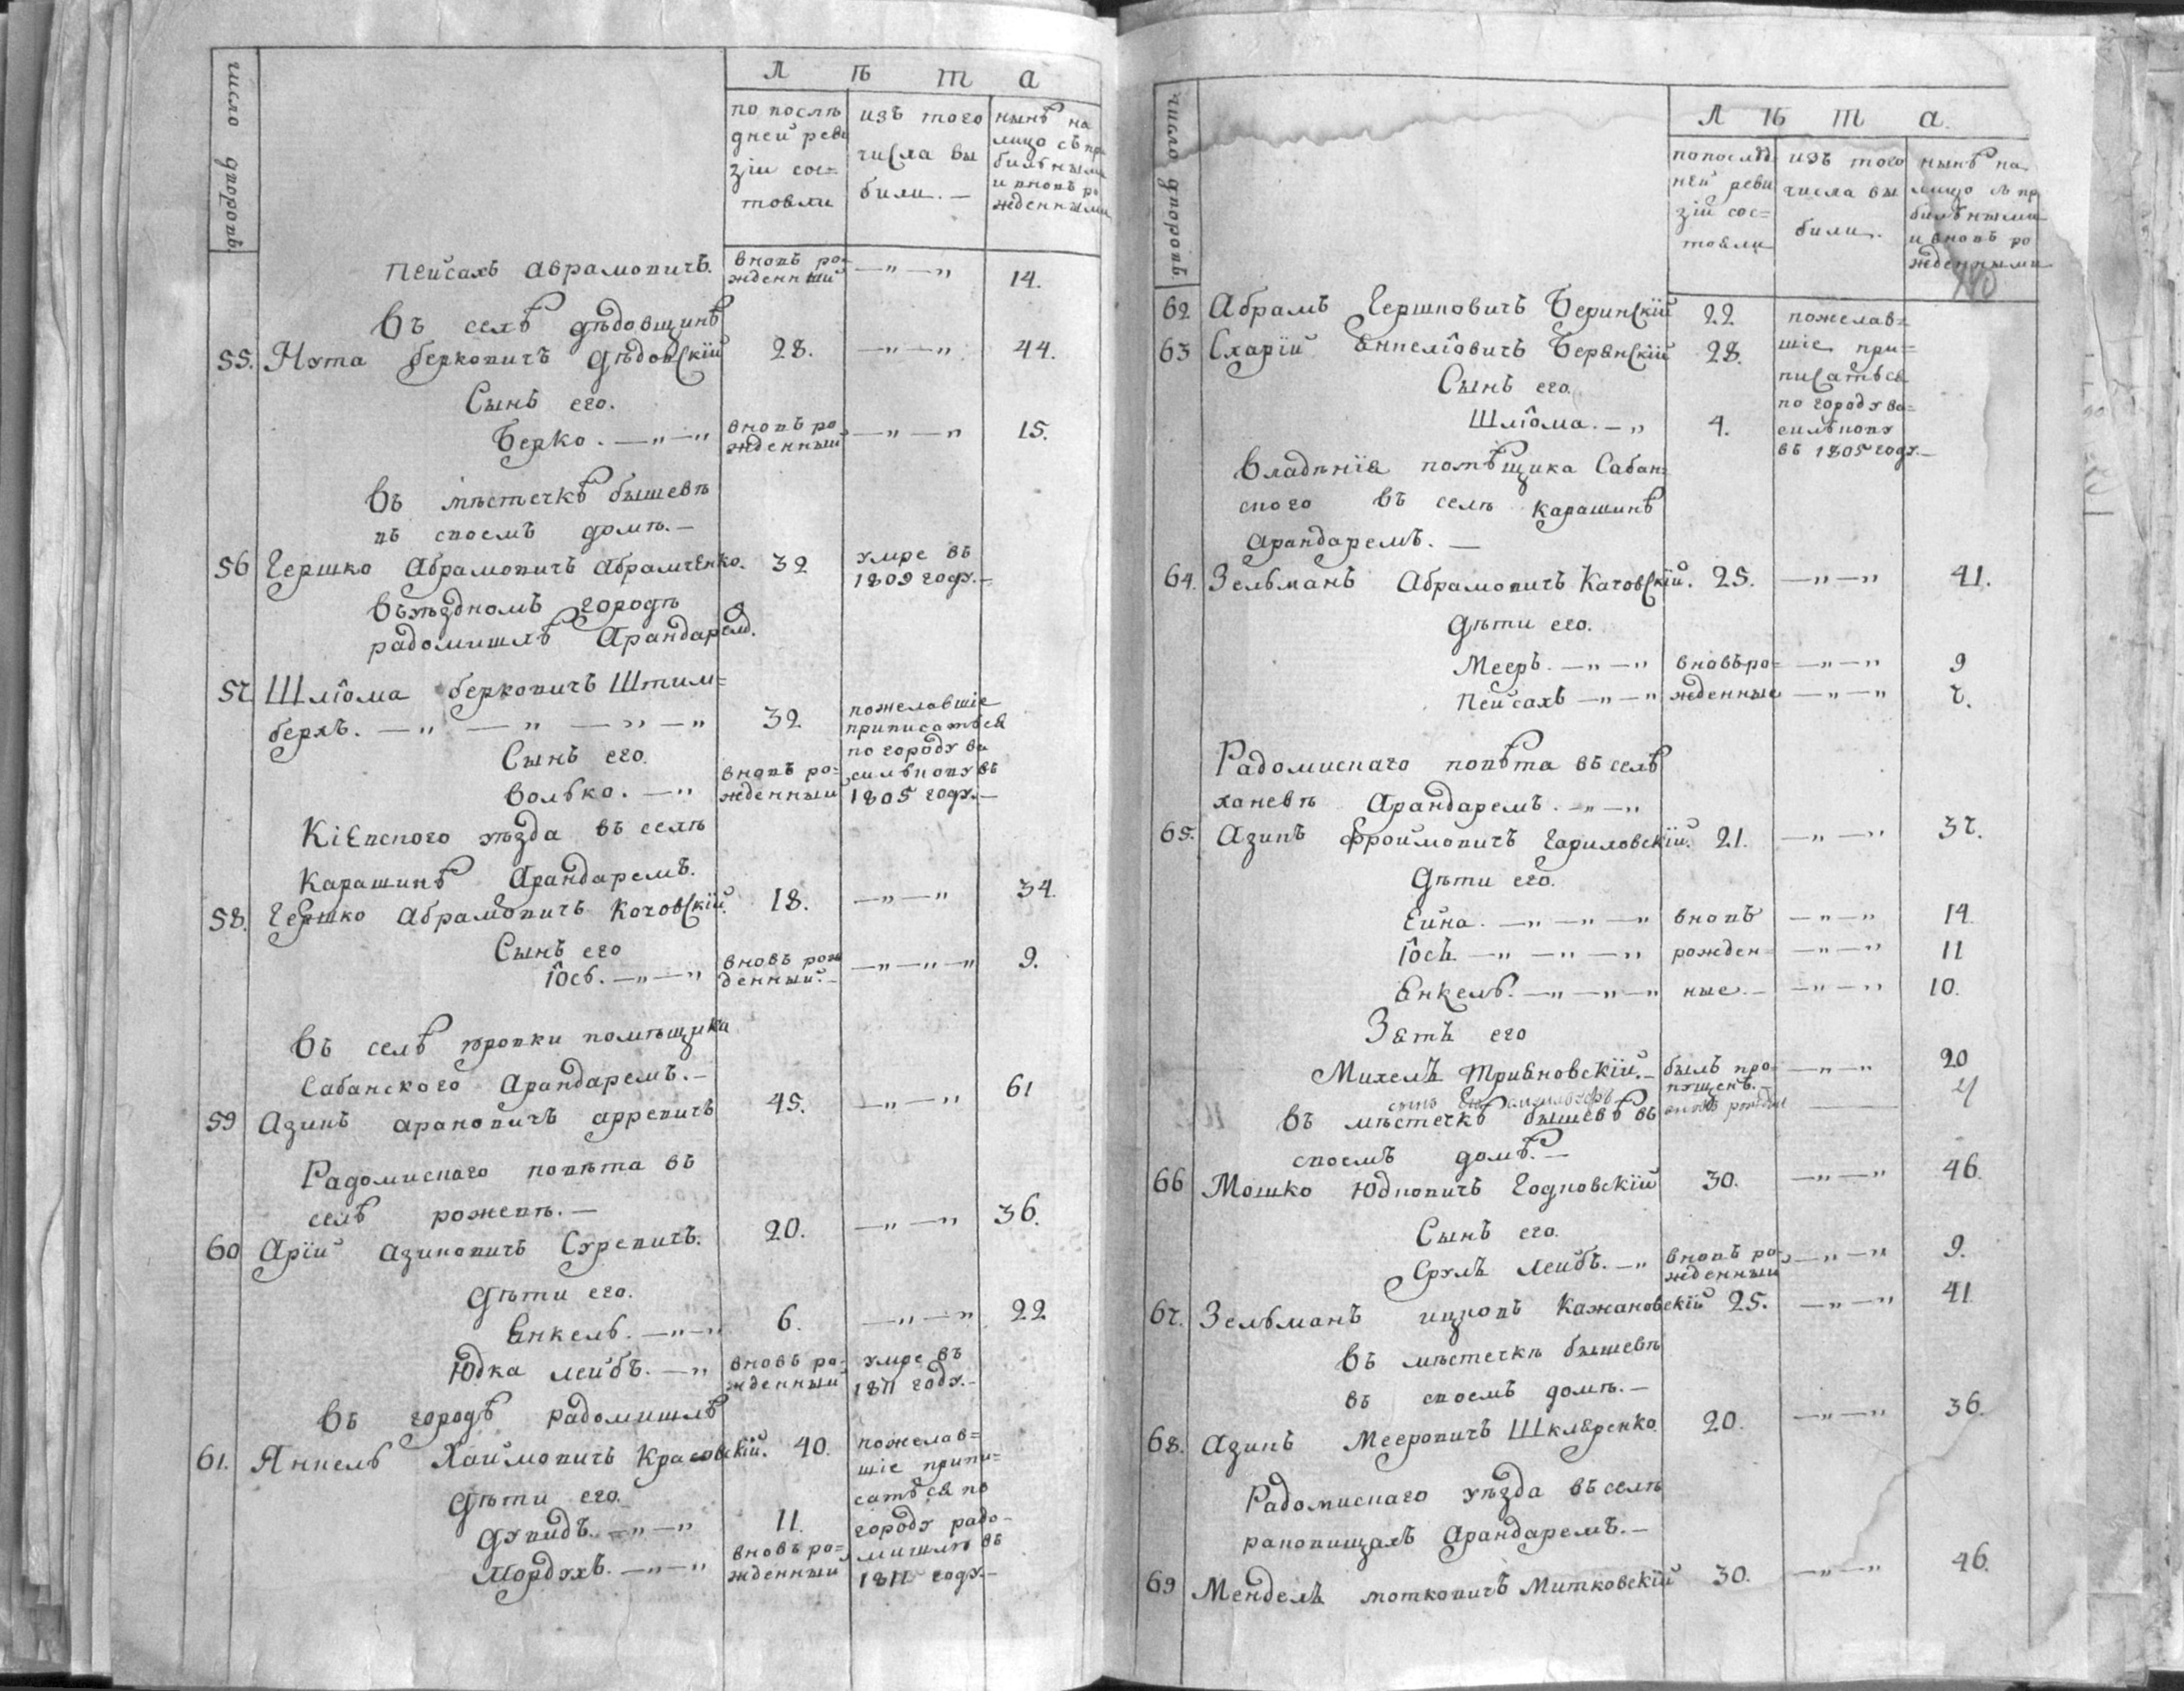 число дворовъ
Л ѣ т а
по послѣ
дней реви
зіи сос=
тояли
изъ того
числа вы
были. —
нынѣ на
лицо съ при
былыми
и вновь ро
жденными
Пейсахъ Абрамовичъ. вновь ро=
жденный — " — " 14.
Въ селѣ Дѣдовщинѣ
55. Нута Берковичъ Дѣдовскій 28. — " — " 44.
Сынъ его.
Берко. — " — " вновь ро=
жденный — " — " 15.
Въ мѣстечкѣ Бышевѣ
въ своемъ домѣ. —
56 Гершко Абрамовичъ Абрамченко. 32 умре въ
1809 году. —
Въ уѣздномъ городѣ
Радомишлѣ Арандаремъ.
57 Шліома Берковичъ Штим=
берхъ. — " — " — " — " 32 пожелавшіе
приписатьса
Сынъ его. по городу ва
Волько. — " вновь ро= силькову въ
жденный 1805 году. —
Кіевского уѣзда въ селѣ
Карашинѣ Арандаремъ.
58. Гершко Абрамовичъ Кочовскій. 18. — " — " 34.
Сынъ его
Іось. — " — " вновь рож
денный. — — " — " — " 9.
Въ селѣ помѣщика
Сабанского Арандаремъ. —
59 Азикъ Ароновичъ 45. — " — " 61
Радомиснаго повѣта въ
селѣ рожевѣ. —
60 Арій Азиковичъ 20. — " — " 36.
Дѣти его.
Янкель. — " — " 6. — " — " 22
Юдка лейбъ. — " вновь ро= умре въ
жденный 1811 году. —
Въ городѣ Радомишлѣ
61. Янкель Хаймовичъ Красовскій. 40. пожелав=
шіе припи=
Дѣти его. сатьса по
Дувидъ. — " — " 11. городу радо=
Мордухъ. — " — " вновь ро= мишлю въ
жденный 1811 году. —
число дворовъ
Л ѣ т а.
по послѣд
ней реви
зіи сос=
тояли
изъ того
числа вы
были.
нынѣ на
лицо съ пр
былыми
и вновь ро
жденными
62 Абрамъ Гершковичъ Беринскій 22 пожелав=
63 Схарій Янкеліовичъ Беренскій 28. шіе при=
Сынъ его. писатьса
по городу ва=
Шліома. — " 4. силькову
въ 1805 году. —
Владѣнія помѣщика Сабан=
ского въ селѣ Карашинѣ
Арандаремъ. —
64. Зельманъ Абрамовичъ Качовскій. 25. — " — " 41.
Дѣти его.
Мееръ. — " — " вновь ро= — " — " 9
Пейсахъ — " — " жденные — " — " 7.
Радомиснаго повѣта въ селѣ
ханевѣ Арандаремъ. — " — "
65. Азикъ Фроймовичъ Гариловскій. 21. — " — " 37.
Дѣти его.
Ейна. — " — " — " вновь — " — " 14
Іось — " — " — " рожден= — " — " 11
Янкель. — " — " — " ные. — — " — " 10.
Зять его
Михель Тривновскій. — быль про=
пущенъ. — — " — " 20
сынъ его 4
Въ мѣстечкѣ Бышевѣ въ
своемъ домѣ. —
66 Мошко Юдковичъ Годновскій 30. — " — " 46.
Сынъ его.
Срулъ Лейбъ. — " вновь ро=
жденный — " — " 9.
67. Зельманъ Ицковъ Кажановскій 25. — " — " 41
Въ мѣстечкѣ Бышевѣ
въ своемъ домѣ. —
68. Азикъ Мееровичъ Шкляренко. 20. — " — " 36.
Радомиснаго уѣзда въ селѣ
раковищахъ Арандаремъ. —
69 Мендель Мотковичъ Митковскій 30. — " — " 46.